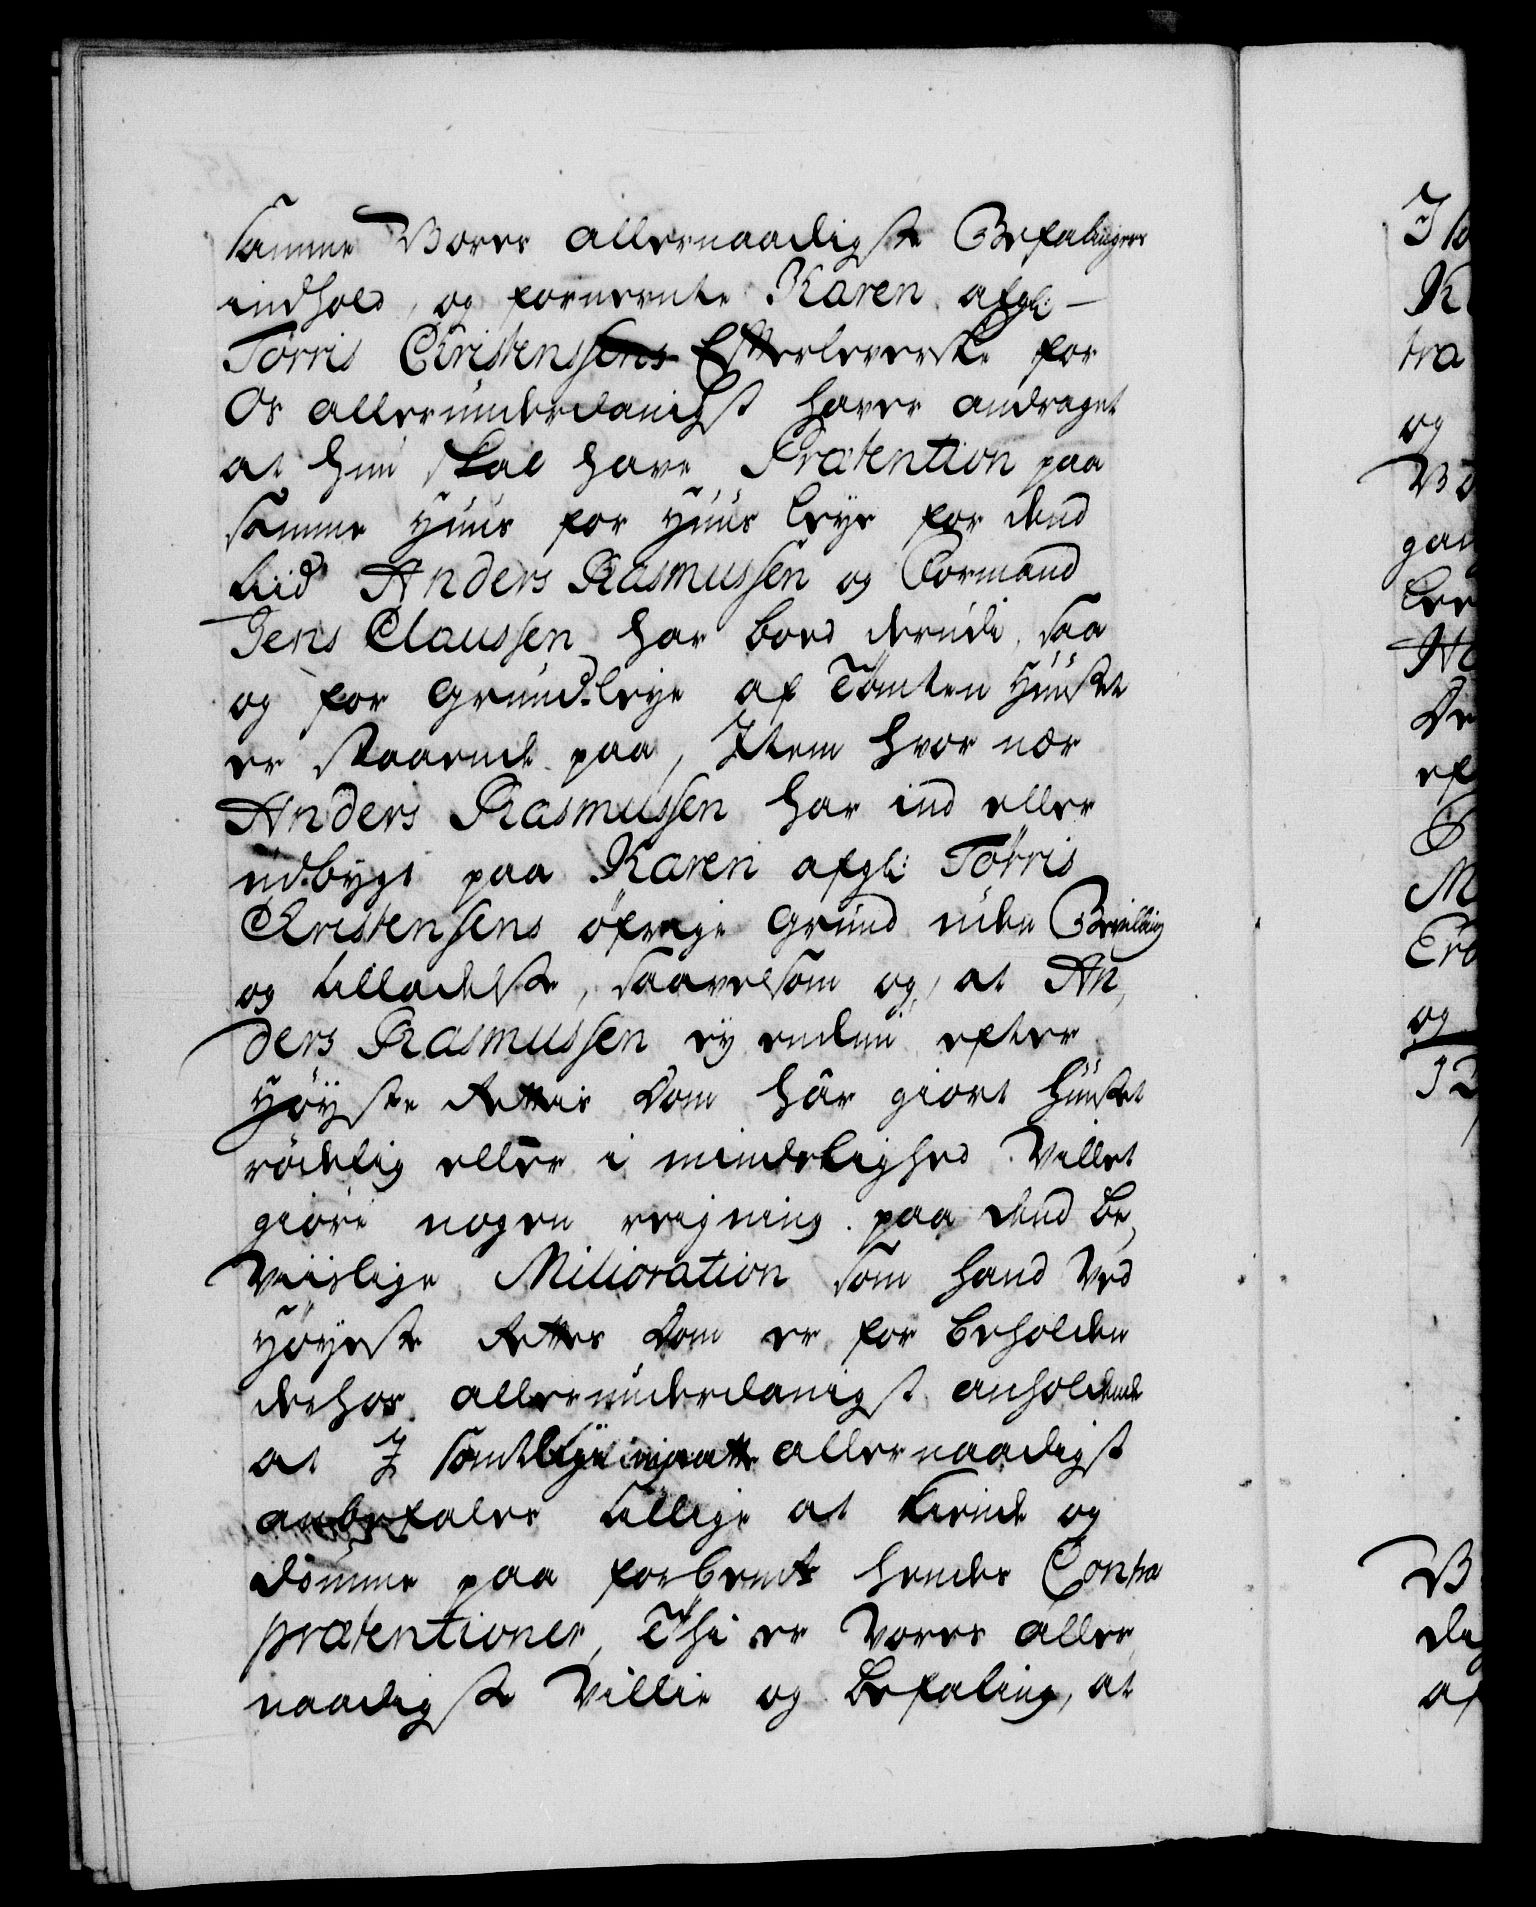 samme Vores allernaadigste Befalingers
indhold, og fornevnte Karen afgl:
Tørris Christenssens Efterleverske for
Os allerunderdanigst haver andraget
at hun skal have Prætention paa
samme Huus for Huus leye for dend
tiid Anders Rasmussen og Formand
Jens Claussen har boed derudi, saa
og for Grund-leye af Tomten Huuset
er staaende paa, Item hvor nær
Anders Rasmussen har ind eller
udbygt paa Karen afgl: Tørris
Christensens øfrige Grund uden Bevilling
og tilladelse, saavelsom og, at An-
ders Rasmussen ey endnu efter
Høyste Rettes Dom har giort Huuset
rødelig eller i mindelighed Villet
giøre nogen reigning paa dend be-
Viislige Milioration som hand Ved
Høyeste Rettes Dom er for beholden
derhos allerunderdanigst anholdende
at I samtlige maatte allernaadigst
anbefales tillige at kiende og
dømme paa forbemte hendes Contra
prætentioner, Thi er Vores aller
naadigste Villie og Befaling, at
og
og